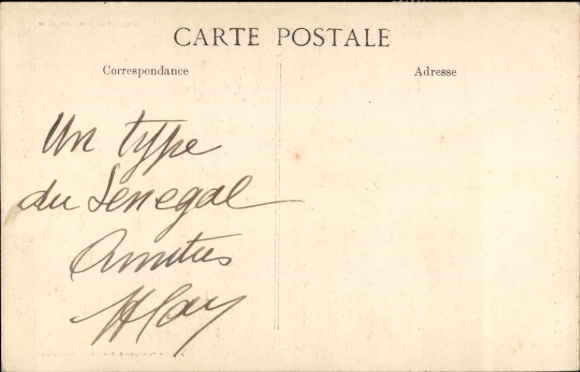 CARTE POSTALE
Correspondance
Adresse
Un type
du Senegal
Amitiés